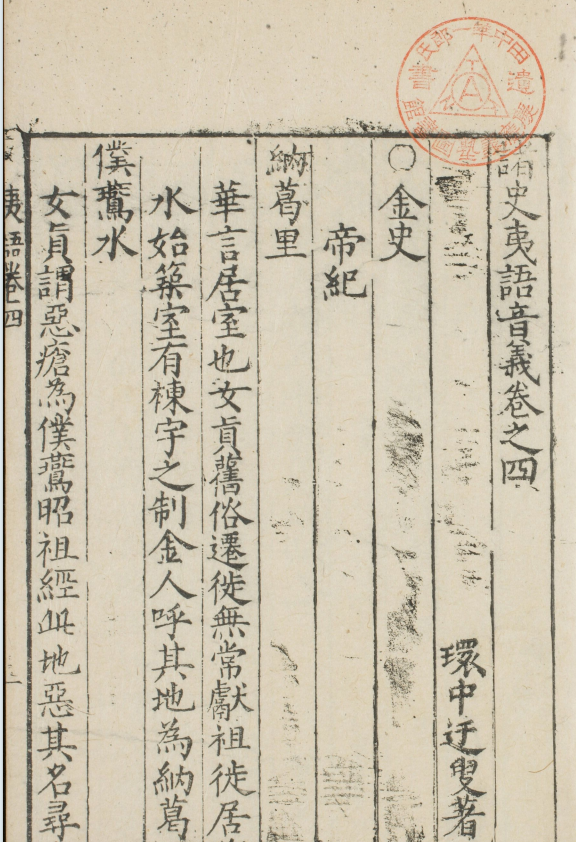 諸史夷語音義卷之四
環中迂叟著
○金史
帝紀
納葛里
華言居室也女真舊俗遷徙無常獻祖徙居
水始築室有棟宇之制金人呼其地為納葛
僕鷰水
女真謂惡瘡為僕鷰昭祖經此地惡其名尋
夷語卷四